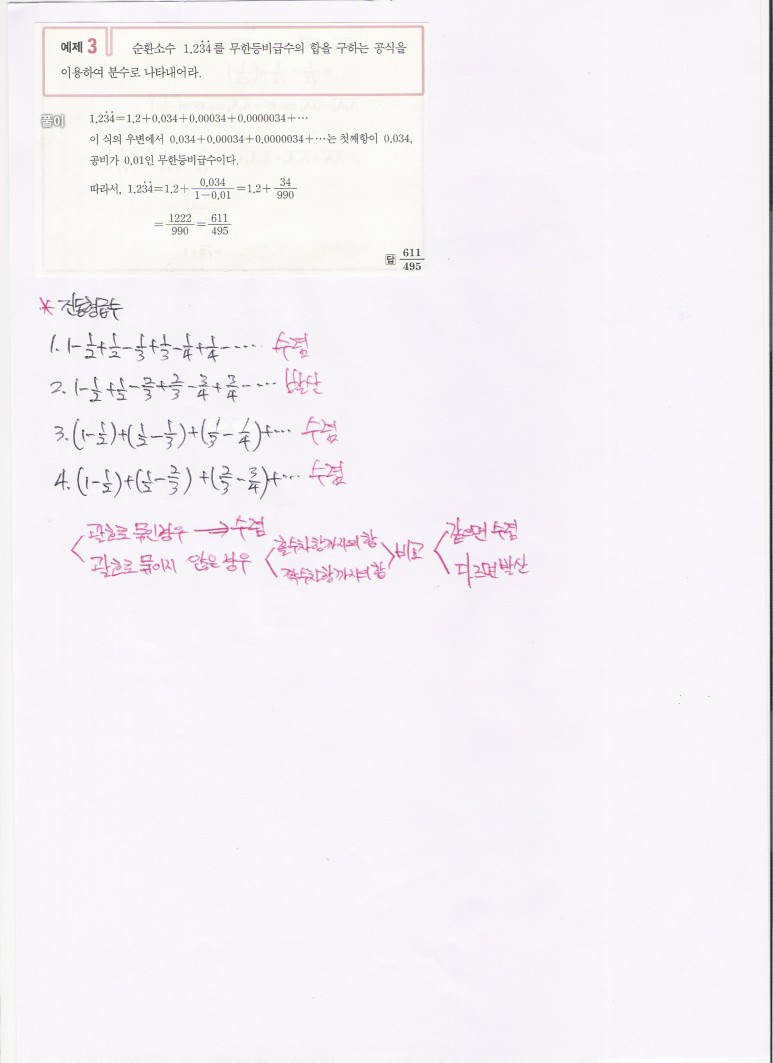 예제 3 순환소수 1.23̇4̇를 무한등비급수의 합을 구하는 공식을
이용하여 분수로 나타내어라.
풀이 1.23̇4̇=1.2+0.034+0.00034+0.0000034+⋯
이 식의 우변에서 0.034+0.00034+0.0000034+⋯는 첫째항이 0.034,
공비가 0.01인 무한등비급수이다.
따라서, 1.23̇4̇=1.2+0.034/(1-0.01)=1.2+34/990
=1222/990=611/495
답 611/495
* 진동형급수
1. 1-1/2+1/2-1/3+1/3-1/4+1/4-⋯ 수렴
2. 1-1/2+1/2-2/3+2/3-3/4+3/4-⋯ 발산
3. (1-1/2)+(1/2-1/3)+(1/3-1/4)+⋯ 수렴
4. (1-1/2)+(1/2-2/3)+(2/3-3/4)+⋯ 수렴
괄호로 묶인경우 → 수렴
괄호로 묶이지 않은 경우
홀수차항까지의 합
짝수차항까지의 합
비교
같으면 수렴
다르면 발산